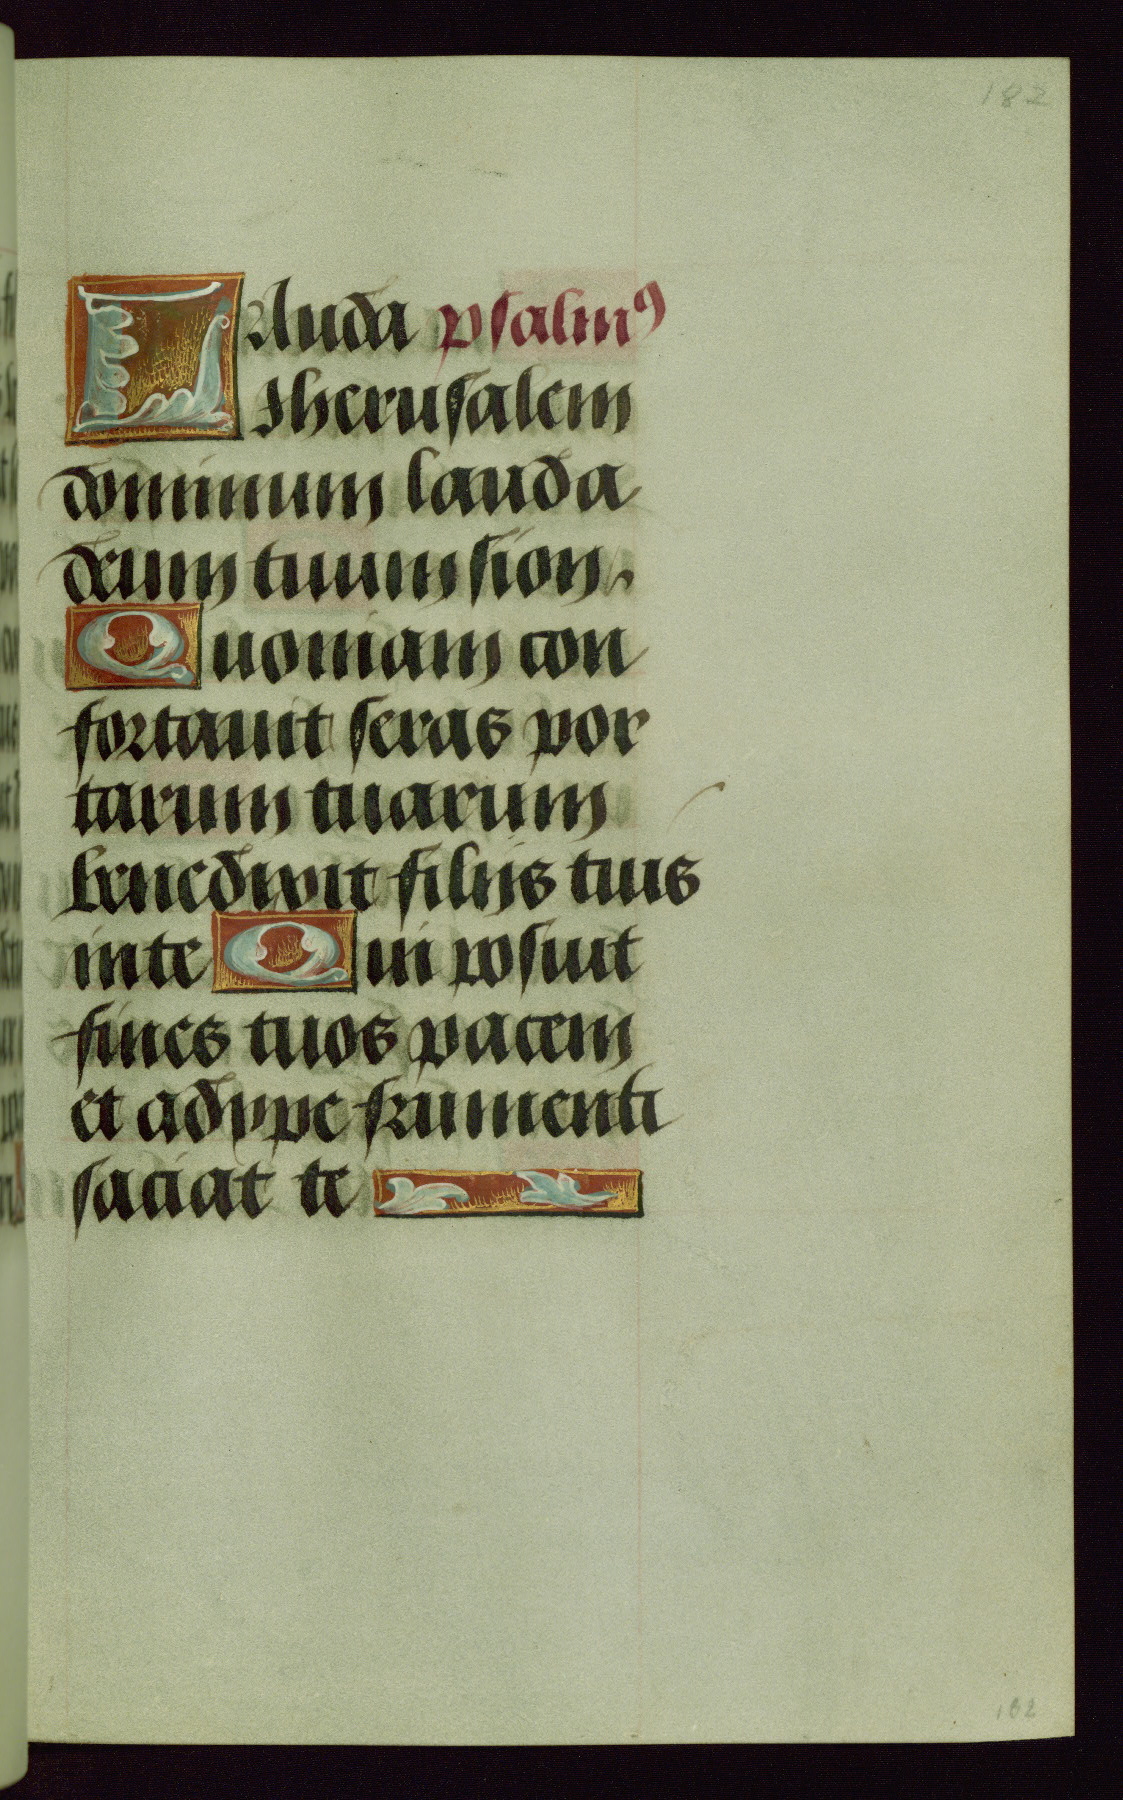 182
LAuda psalmꝰ
Jherusalem
dominum lauda
deum tuum sion.
Quoniam con
fortauit seras por
tarum tuarum
benedixit filijs tuis
in te Qui posuit
fines tuos pacem
et adype frumenti
saciat te
182